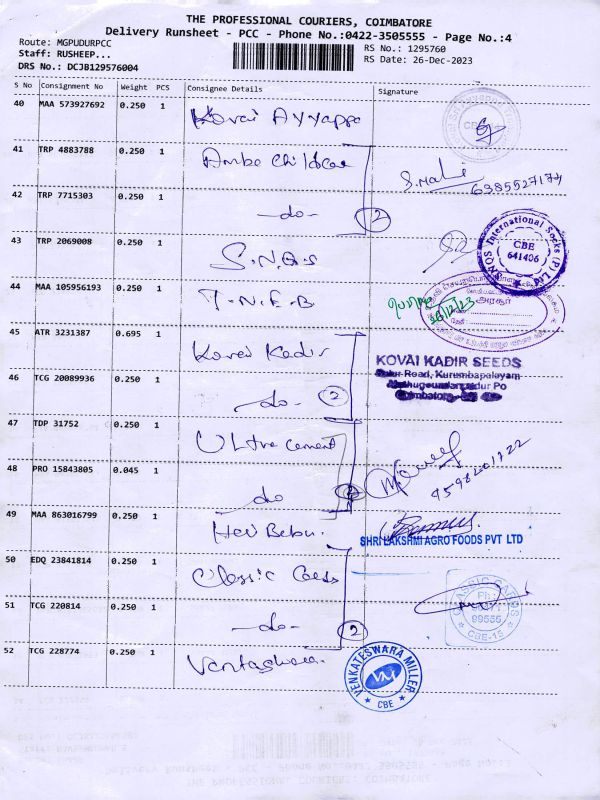 THE PROFESSIONAL COURIERS, COIMBATORE
Delivery Runsheet - PCC - Phone No.:0422-3505555 - Page No.:4
Route: MGPUDURPCC
Staff: RUSHEEP...
DRS No.: DCJB129576004
RS No.: 1295760
RS Date: 26-Dec-2023
S No Consignment No Weight PCS Consignee Details Signature
40 MAA 573927692 0.250 1 Kovai Ayyappa
CBE
41 TRP 4883788 0.250 1 Ambe Childcar
S. Mahe 6385527174
42 TRP 7715303 0.250 1 -do- 2
43 TRP 2069008 0.250 1 S.N.Q.S
SNQS International Socks (P) Ltd
CBE
641406
44 MAA 105956193 0.250 1 T.N.E.B
26/12/23
45 ATR 3231387 0.695 1 Kovai Kadir
KOVAI KADIR SEEDS
Road, Kurumbapalayam
Po
Coimbatore
46 TCG 20089936 0.250 1 -do- 2
47 TDP 31752 0.250 1 Ultra cement
48 PRO 15843805 0.045 1 -do 2
49 MAA 863016799 0.250 1 Hari Babu.
SHRI LAKSHMI AGRO FOODS PVT LTD
50 EDQ 23841814 0.250 1 Classic Cards
CLASSIC CARDS
Ph :
99555
CBE-15
51 TCG 220814 0.250 1 -do- 2
52 TCG 228774 0.250 1
VENKATESWARA MILLER
CBE